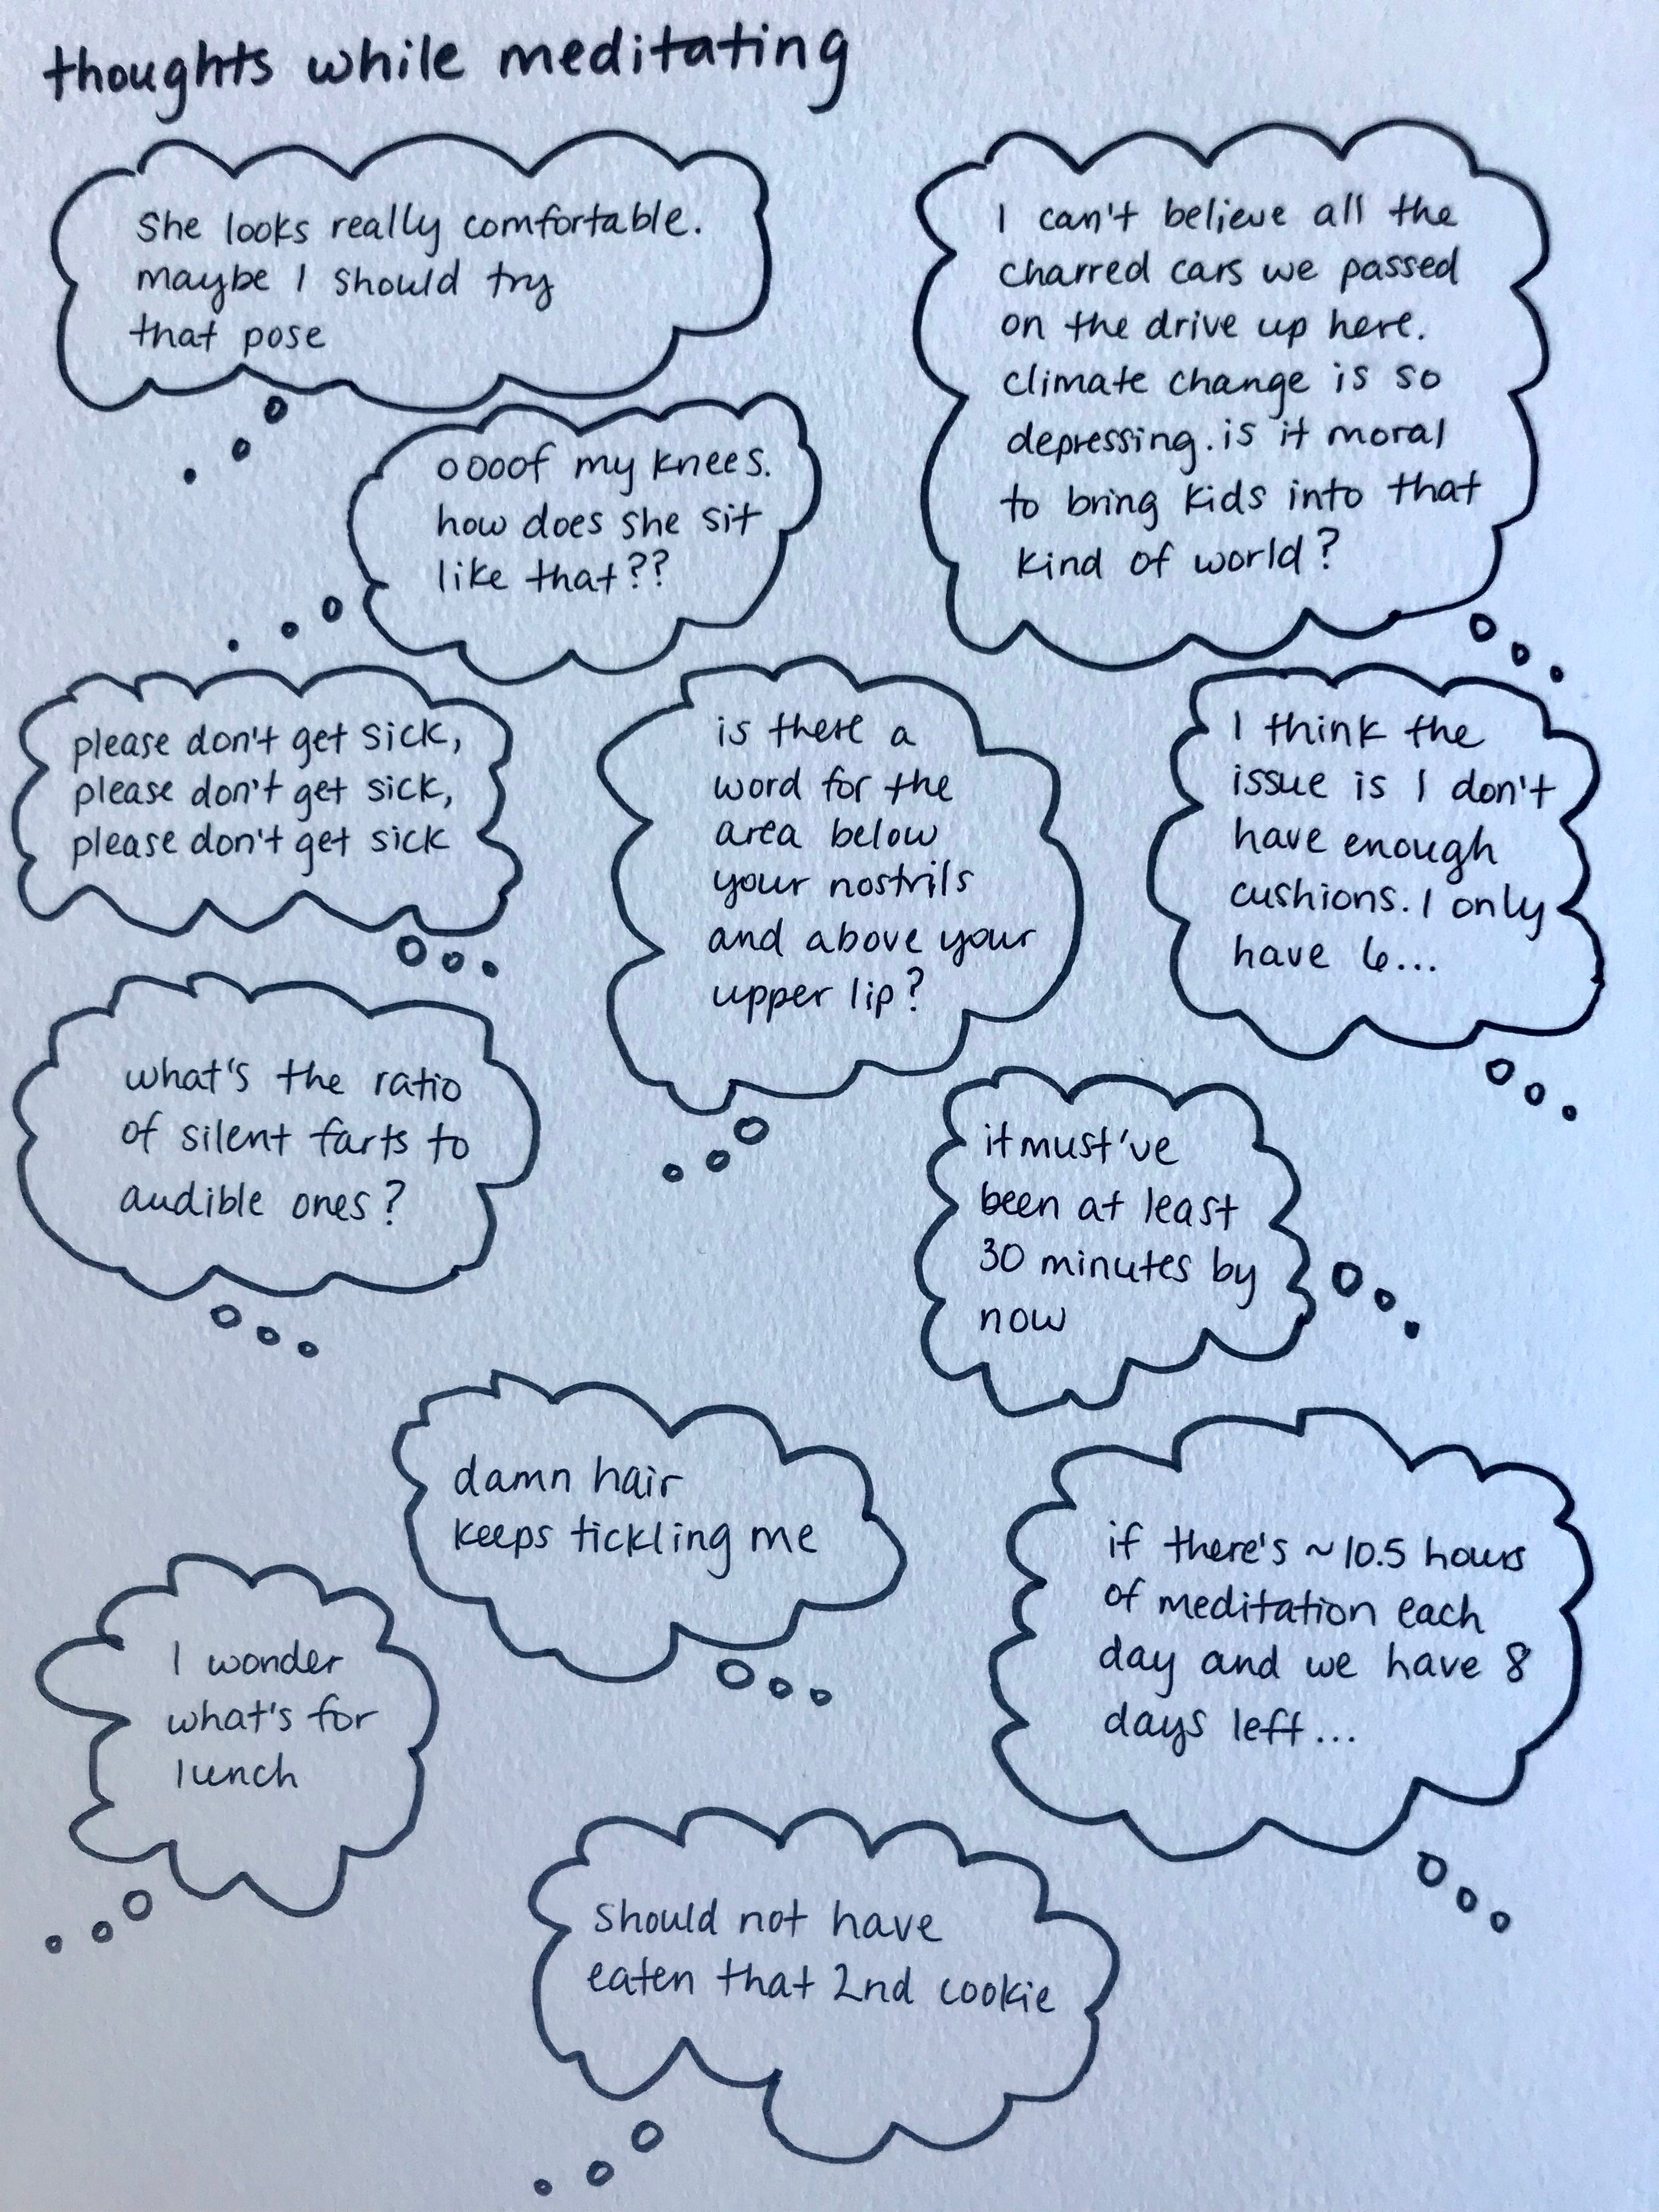 thoughts while meditating
She looks really comfortable.
maybe I should try
that pose
I can't believe all the
charred cars we passed
on the drive up here.
climate change is so
depressing. is it moral
to bring kids into that
kind of world?
oooof my knees.
how does she sit
like that??
please don't get sick,
please don't get sick,
please don't get sick
is there a
word for the
area below
your nostrils
and above your
upper lip?
I think the
issue is I don't
have enough
cushions. I only
have 6...
what's the ratio
of silent farts to
audible ones?
it must've
been at least
30 minutes by
now
damn hair
keeps tickling me
if there's ~10.5 hours
of meditation each
day and we have 8
days left...
I wonder
what's for
lunch
should not have
eaten that 2nd cookie